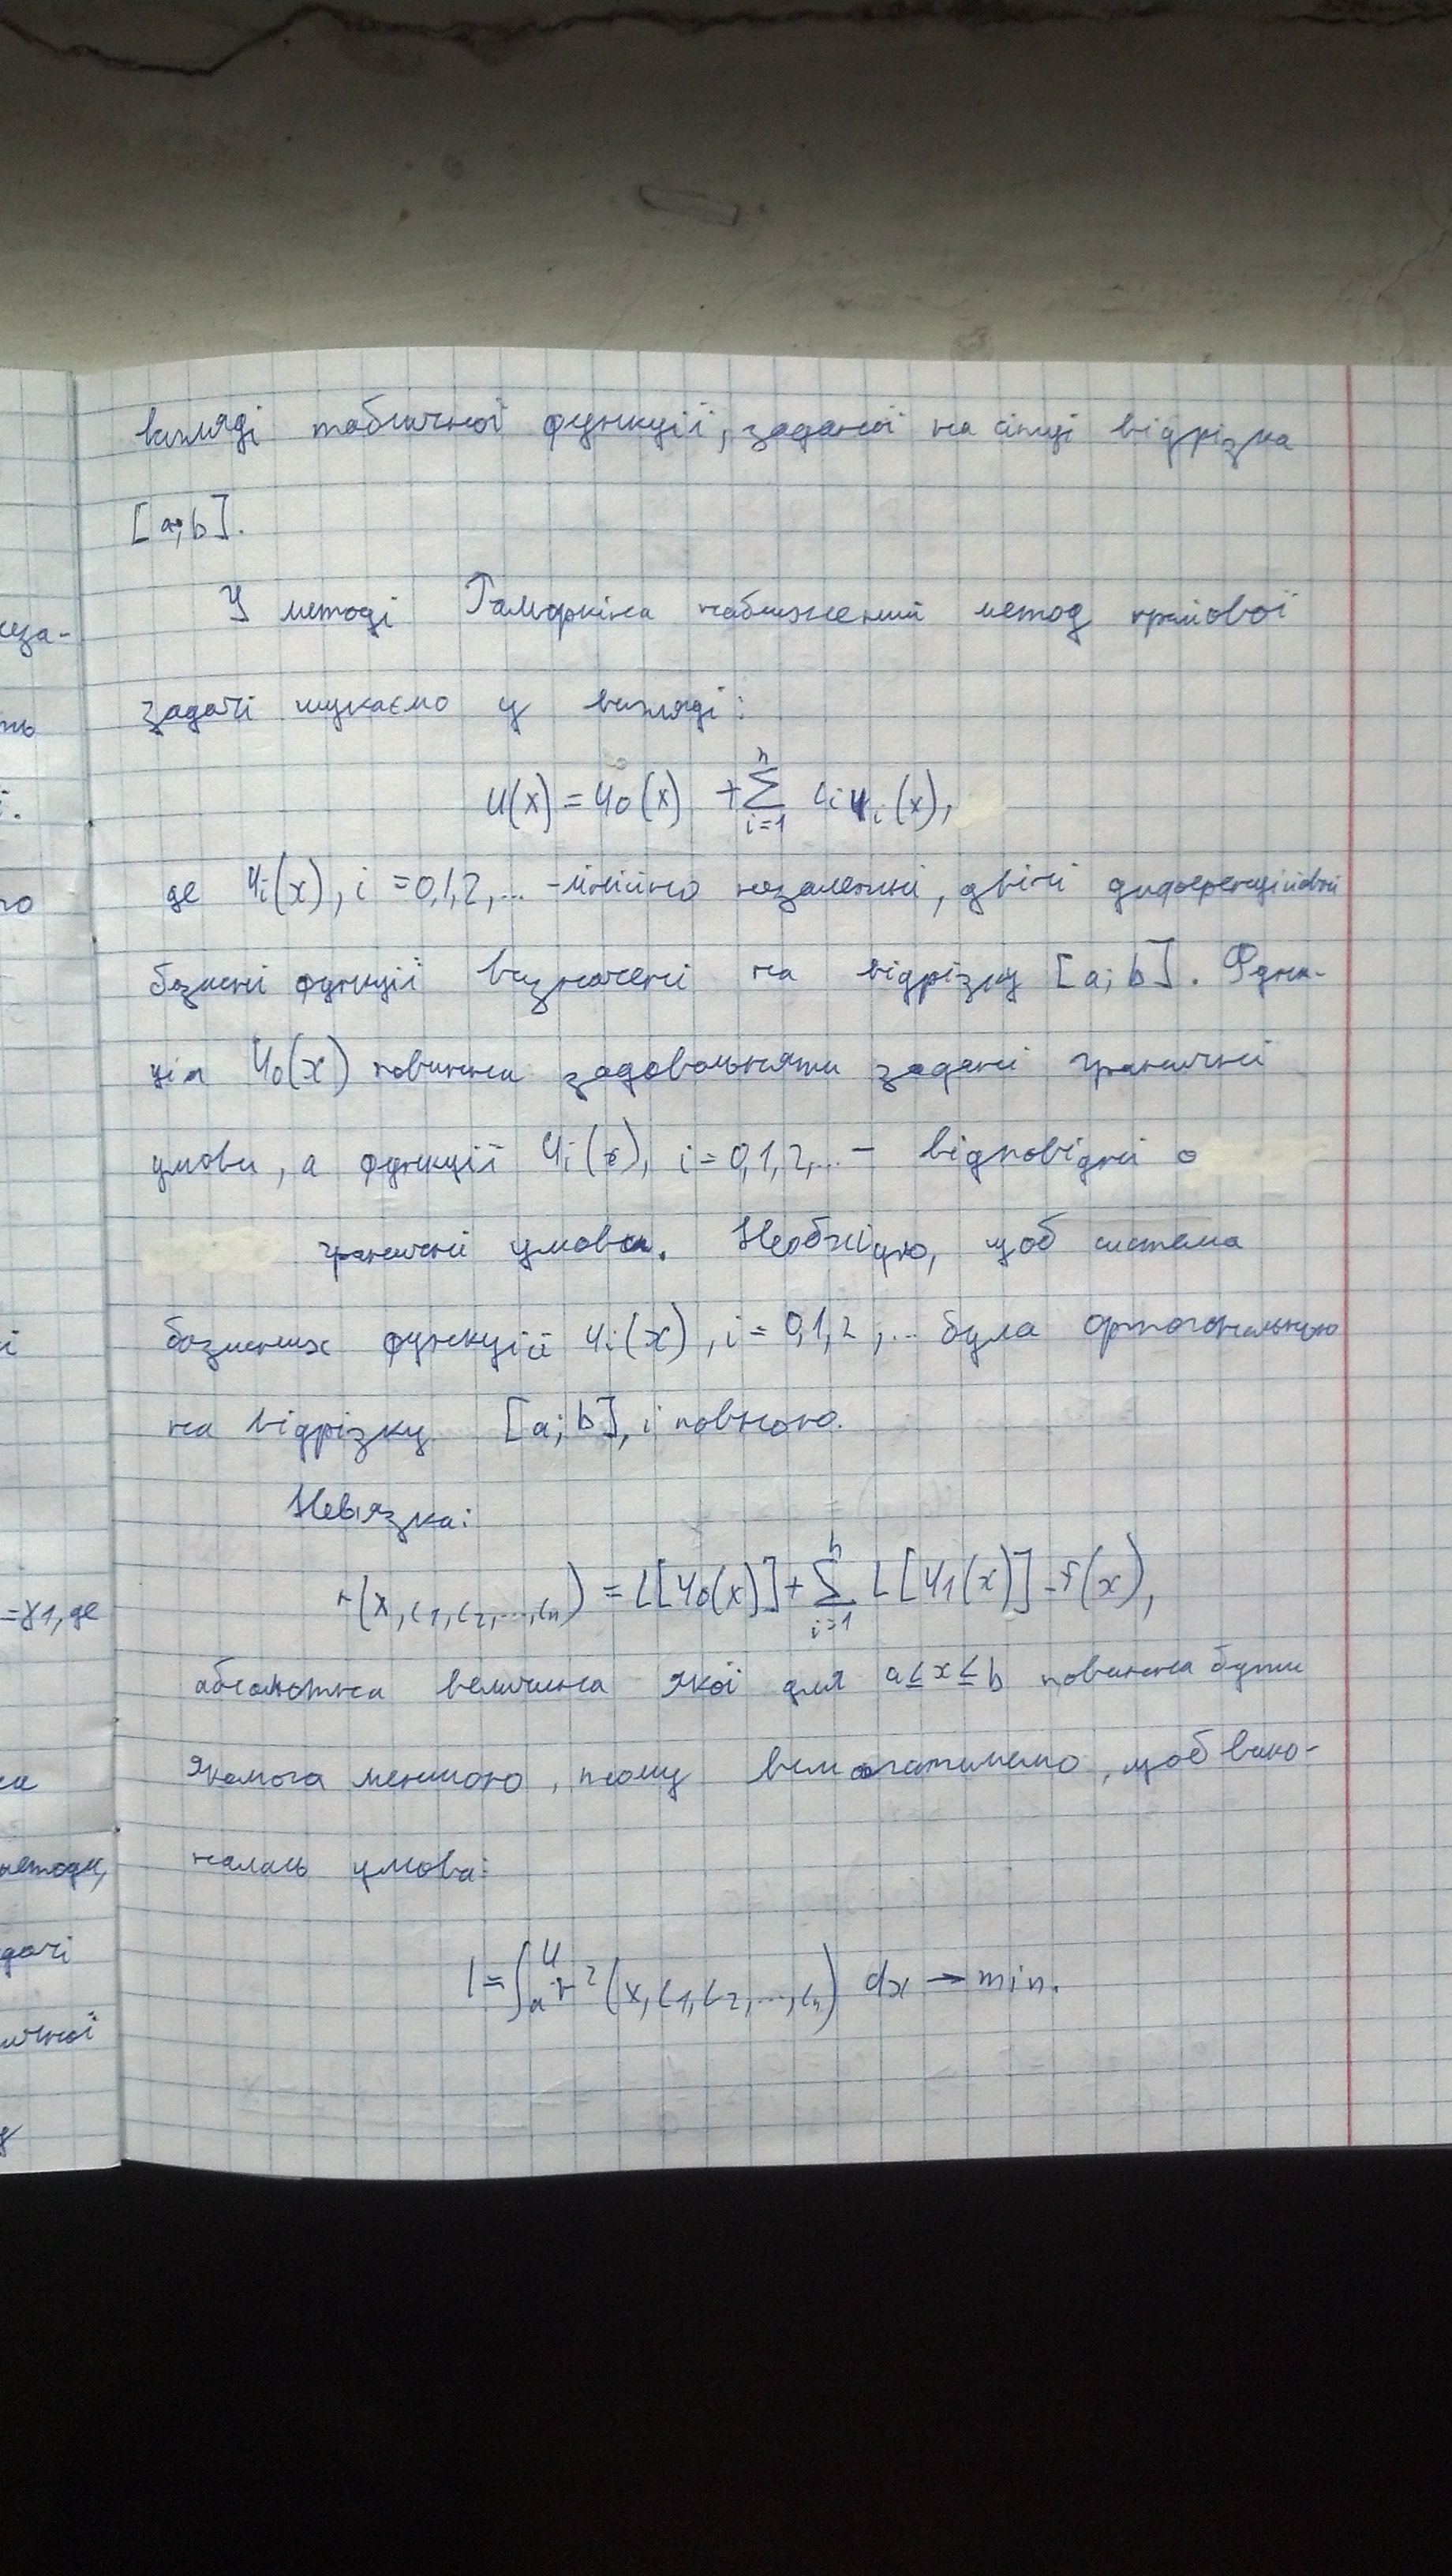 вигляді табличної функції, заданої на сітці відрізка
[a; b].
У методі Гальоркіна наближений метод крайової
задачі шукаємо у вигляді:
u(x) = φ0(x) + ∑ i=1 n ci φi(x),
де φi(x), i = 0,1,2,... - лінійно незалежні, двічі диференційовні
базисні функції визначені на відрізку [a; b]. Функ-
ція φ0(x) повинна задовольняти задані граничні
умови, а функції φi(x), i = 0,1,2,... - відповідні о
граничні умови. Необхідно, щоб система
базисних функцій φi(x), i = 0,1,2,... була ортогональною
на відрізку [a; b], і повною.
Нев'язка:
r(x, c1, c2, ..., cn) = L[φ0(x)] + ∑ i=1 n L[φ1(x)] - f(x),
абсолютна величина якої для a ≤ x ≤ b повинна бути
якомога меншою, тому вимагатимемо, щоб вико-
налась умова:
I = ∫ a u r²(x, c1, c2, ..., cn) dx → min.
ца-
ть
і.
го
і
= γ1, де
методи,
дачі
ичної